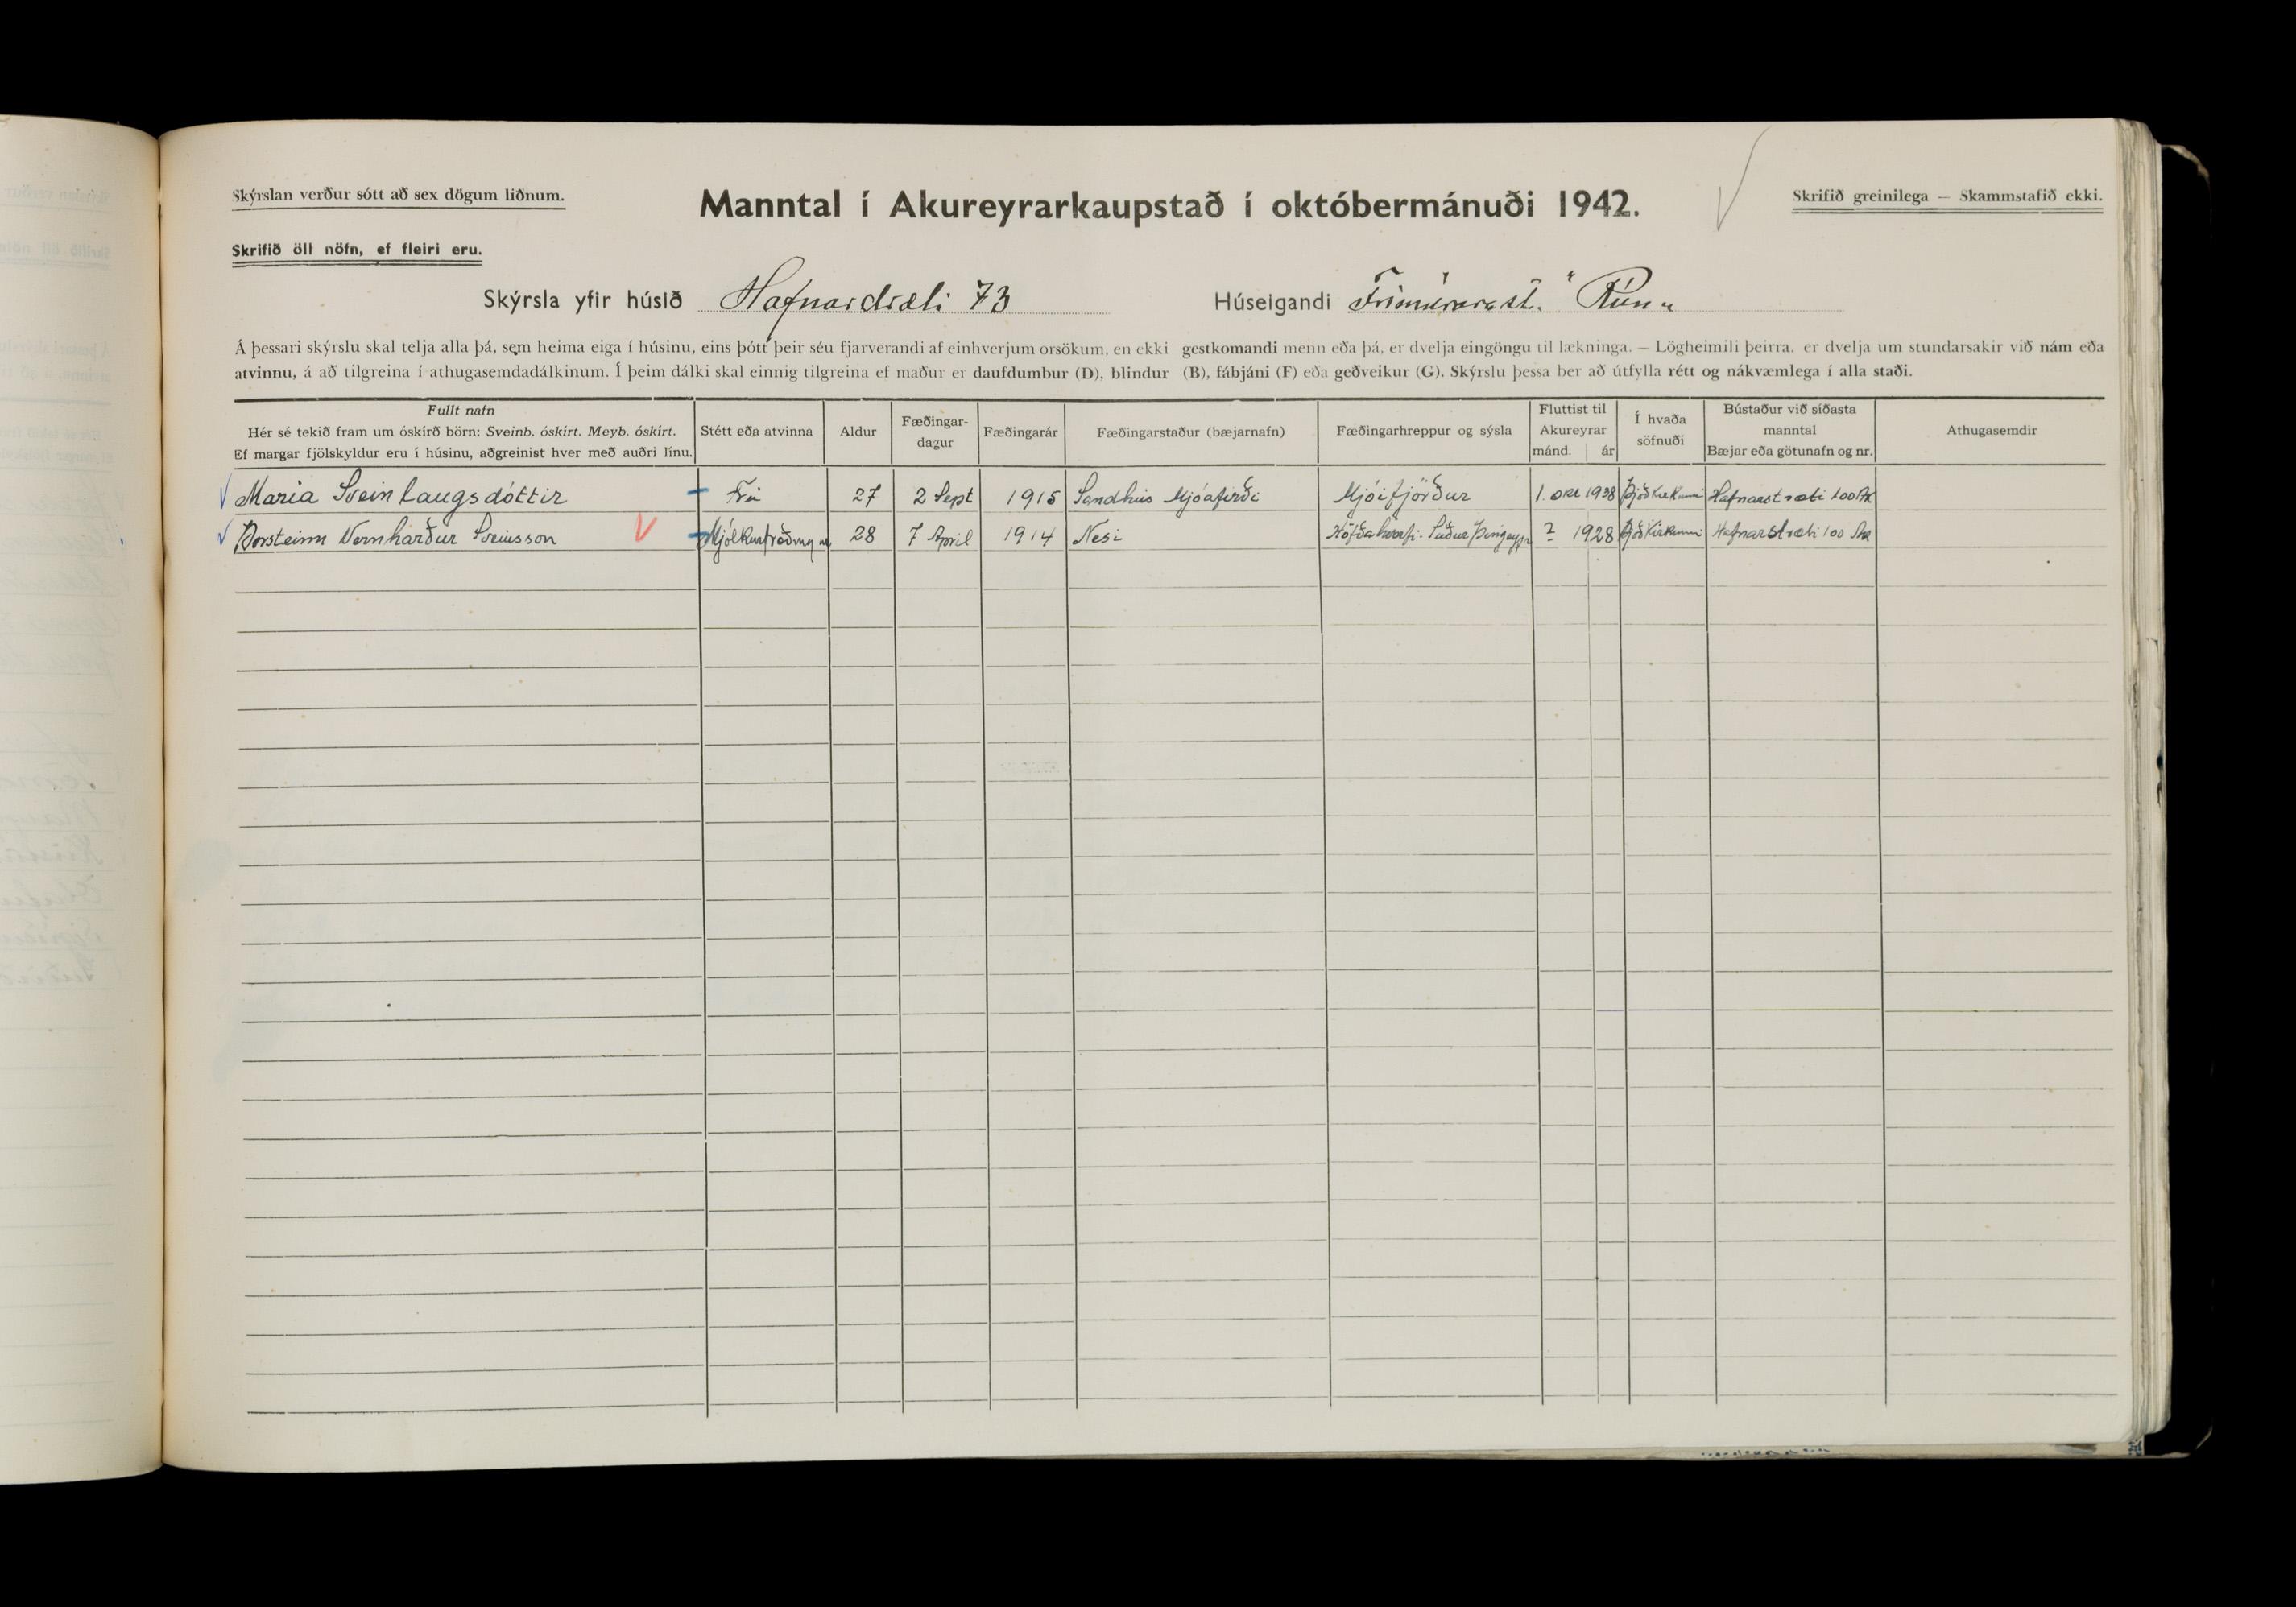 Skýrslan verður sótt að sex dögum liðnum.
Manntal í Akureyrarkaupstað í októbermánuði 1942.
Skrifið greinilega — Skammstafið ekki.
Skrifið öll nöfn, ef fleiri eru.
Skýrsla yfir húsið Hafnarstræti 73 Húseigandi Frímúrarast. "Rún"
Á þessari skýrslu skal telja alla þá, sem heima eiga í húsinu, eins þótt þeir séu fjarverandi af einhverjum orsökum, en ekki gestkomandi menn eða þá, er dvelja eingöngu til lækninga. — Lögheimili þeirra, er dvelja um stundarsakir við nám eða
atvinnu, á að tilgreina í athugasemdadálkinum. Í þeim dálki skal einnig tilgreina ef maður er daufdumbur (D), blindur (B), fábjáni (F) eða geðveikur (G). Skýrslu þessa ber að útfylla rétt og nákvæmlega í alla staði.
Fullt nafn
Hér sé tekið fram um óskírð börn: Sveinb. óskírt. Meyb. óskírt.
Ef margar fjölskyldur eru í húsinu, aðgreinist hver með auðri línu.
Stétt eða atvinna
Aldur
Fæðingar-
dagur
Fæðingarár
Fæðingarstaður (bæjarnafn)
Fæðingarhreppur og sýsla
Fluttist til
Akureyrar
mánd. ár
Í hvaða
söfnuði
Bústaður við síðasta
manntal
Bæjar eða götunafn og nr.
Athugasemdir
María Sveinlaugsdóttir Frú 27 2 Sept 1915 Sandhús Mjóafirði Mjóifjörður 1. okt 1938 Þjóðkirkunni Hafnarstræti 100 Ak
Þorsteinn Vernharður Sveinsson Mjólkurfræðingur 28 7 April 1914 Nesi Höfðahverfi Suður Þingeyjar ? 1928 Þjóðkirkunni Hafnarstræti 100 Ak